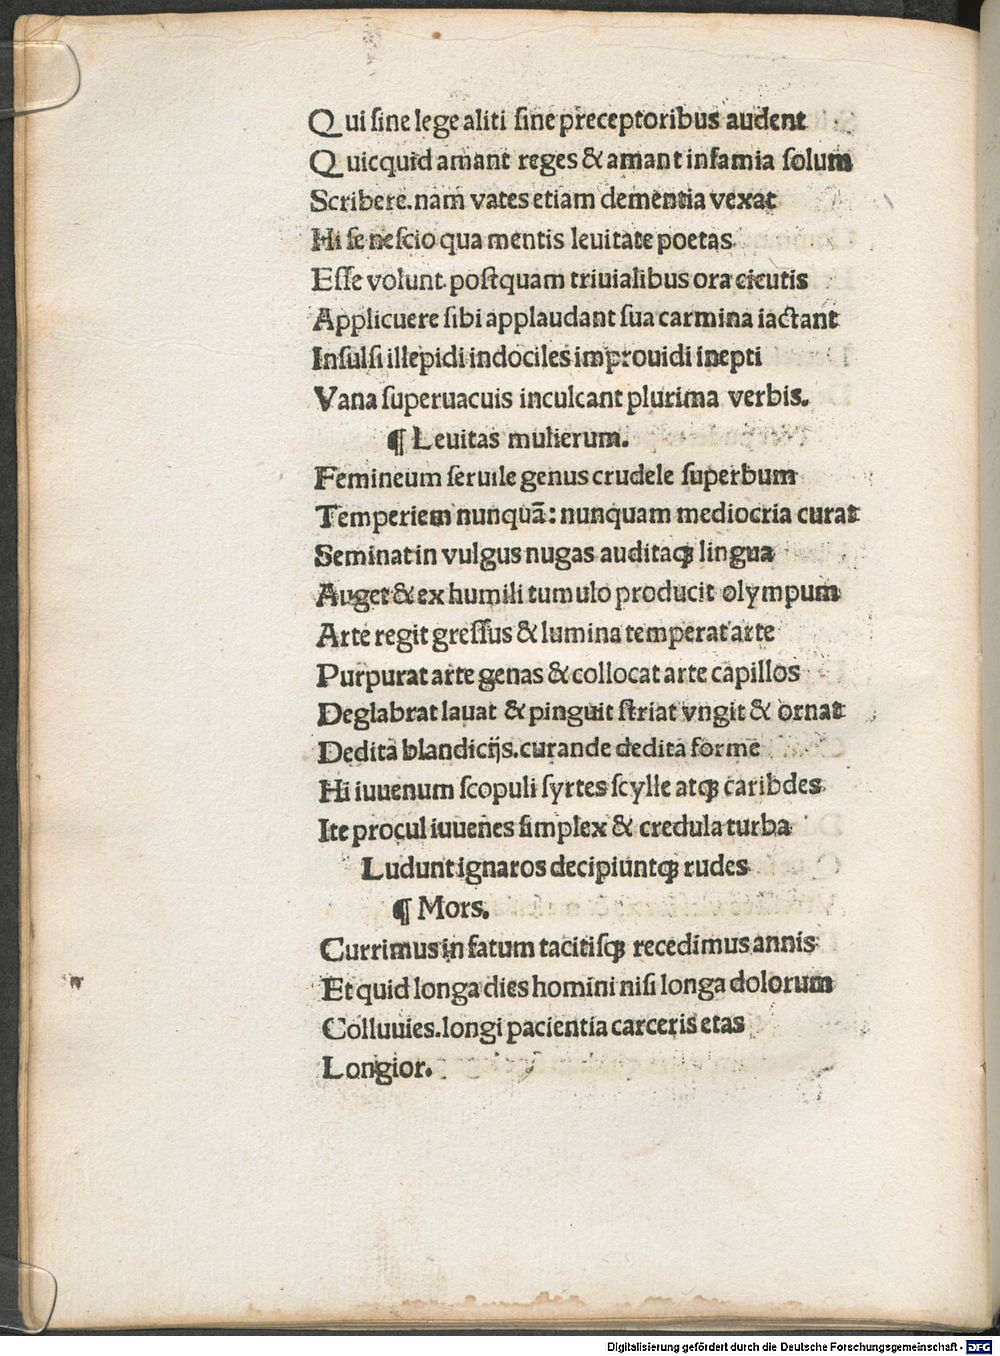 Qui ſine lege aliti ſine preceptoribus audent
Quicquid amant reges & amant infamia ſolum
Scribere.nam vates etiam dementia vexat
Hi ſe neſcio qua mentis leuitate poetas
Eſſe volunt.poſtquam triuialibus ora cicutis
Applicuere ſibi applaudant ſua carmina iactant
Inſulſi illepidi indociles improuidi inepti
Vana ſuperuacuis inculcant plurima verbis.
¶ Leuitas mulierum.
Femineum ſeruile genus crudele ſuperbum
Temperiem nunquã: nunquam mediocria curat
Seminat in vulgus nugas auditaqꝫ lingua
Auget & ex humili tumulo producit olympum
Arte regit greſſus & lumina temperat arte
Purpurat arte genas & collocat arte capillos
Deglabrat lauat & pinguit ſtriat vngit & ornat
Dedita blandicijs.curande dedita forme
Hi iuuenum ſcopuli ſyrtes ſcylle atqꝫ caribdes
Ite procul iuuenes ſimplex & credula turba
Ludunt ignaros decipiuntqꝫ rudes
¶ Mors.
Currimus in fatum tacitiſqꝫ recedimus annis
Et quid longa dies homini niſi longa dolorum
Colluuies.longi pacientia carceris etas
Longior.
Digitalisierung gefördert durch die Deutsche Forschungsgemeinschaft - DFG